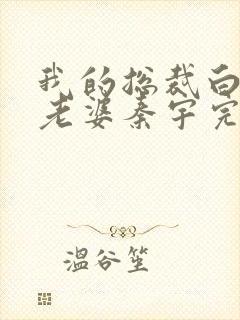 我的总裁白
老婆秦宇完
温谷笙